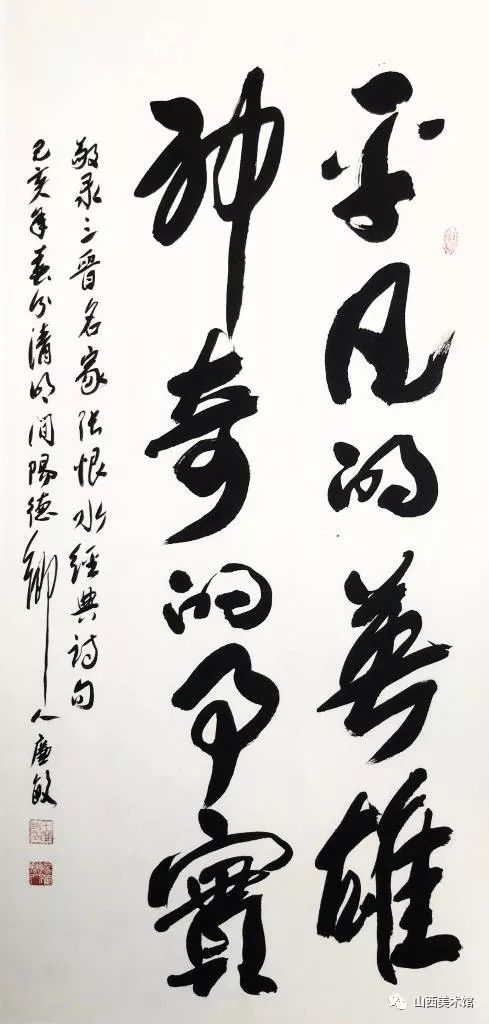 平凡的英雄
神奇的事實
敬录三晋名家张恨水经典诗句
己亥年春分清明间阳德乡人唐敏
山西美术馆